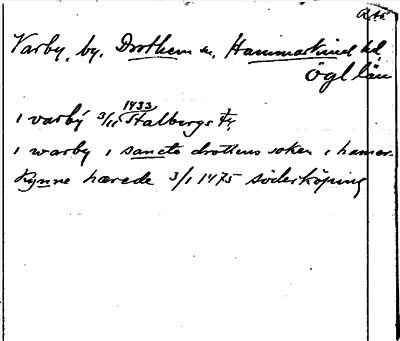 R.A.
Varby, by. Drothem sn, Hammarkind hd,
ögl län
i varbý 3/11 1433 Stalbergs
i warby i sancto drottens soken i hamar-
kynne hærede 3/1 1475 söderköping